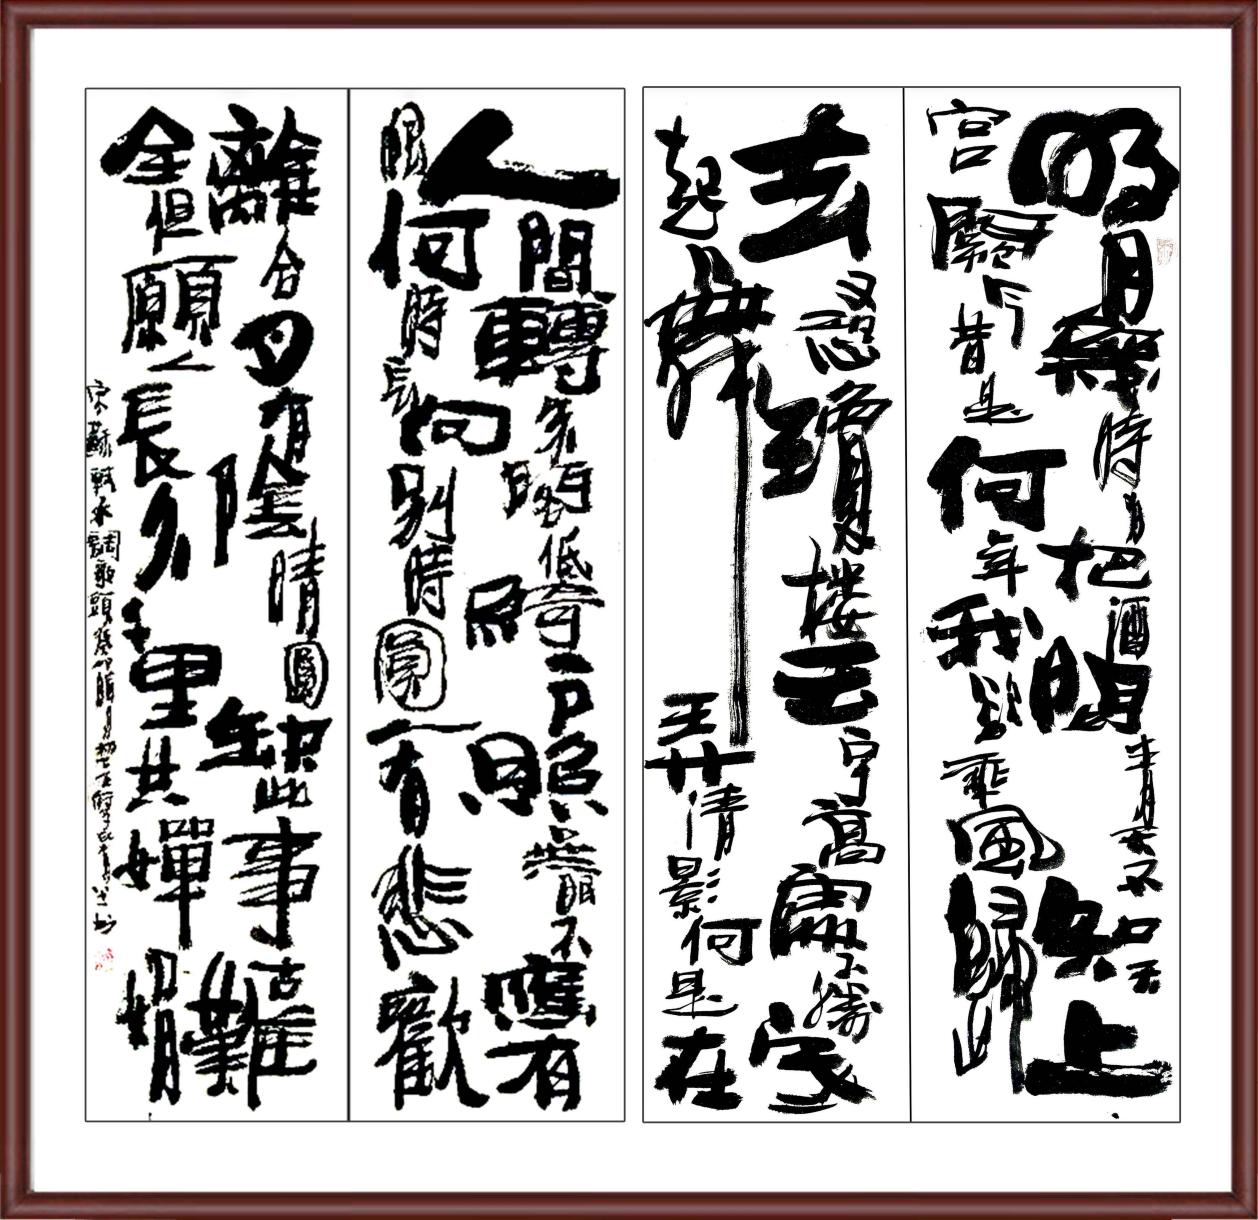 明月幾時有把酒問青天不知天上
宮闕今昔是何年我欲乘風歸
去又恐瓊楼玉宇高處不勝寒
起舞弄清影何是在
人間轉朱閣低綺户照無眠不應有
恨何時長向别時圓人有悲歡
離合月有陰晴圓缺此事古難
全但願人長久千里共嬋娟
宋蘇軾水調歌頭癸卯臘月